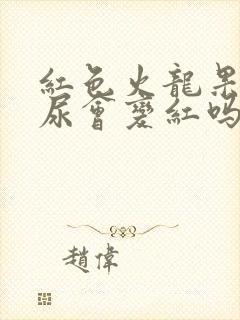 紅色火龍果
尿會變紅嗎
趙偉